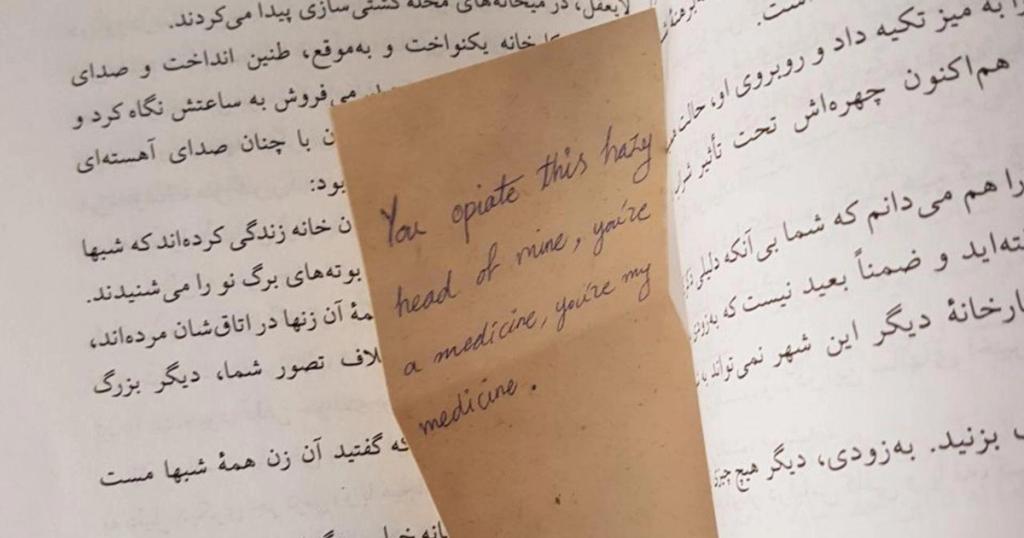 You opiate this hazy
head of mine, you're
a medicine, you're my
medicine.
لایعقل، در میخانه‌های محله کشتی‌سازی پیدا می‌کردند.
خانه یکنواخت و به‌موقع، طنین انداخت و صدای
می‌فروش به ساعتش نگاه کرد و
با چنان صدای آهسته‌ای
بود:
خانه زندگی کرده‌اند که شبها
بوته‌های برگ نو را می‌شنیدند.
آن زنها در اتاق‌شان مرده‌اند،
تصور شما، دیگر بزرگ
که گفتید آن زن همهٔ شبها مست
است.
به میز تکیه داد و روبروی او، حالت
هم‌اکنون چهره‌اش تحت تأثیر
را هم می‌دانم که شما بی‌آنکه دلیلی
و ضمناً بعید نیست که
دیگر این شهر نمی‌تواند
بزنید. به‌زودی، دیگر هیچ چیزی